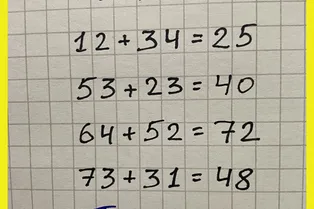 12 + 34 = 25
53 + 23 = 40
64 + 52 = 72
73 + 31 = 48